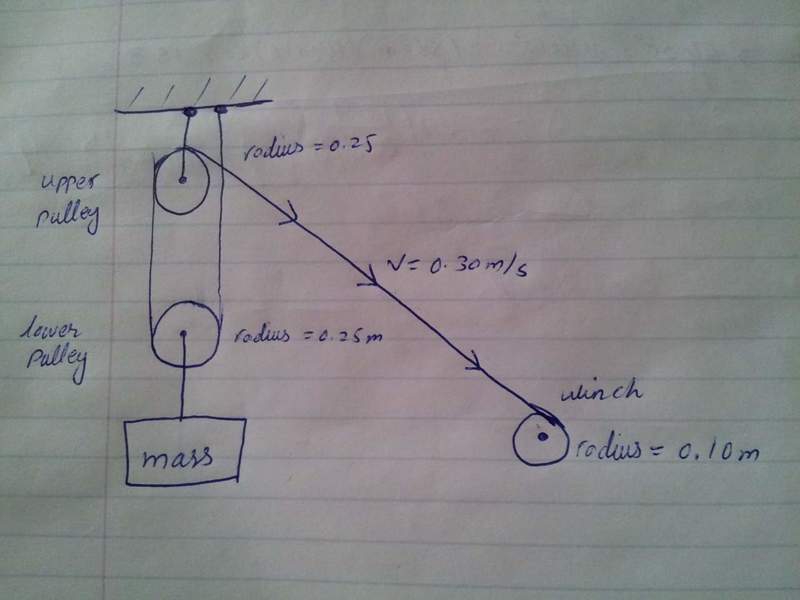 radius = 0.25
upper
pulley
V = 0.30 m/s
lower
pulley
radius = 0.25 m
winch
mass
radius = 0.10 m